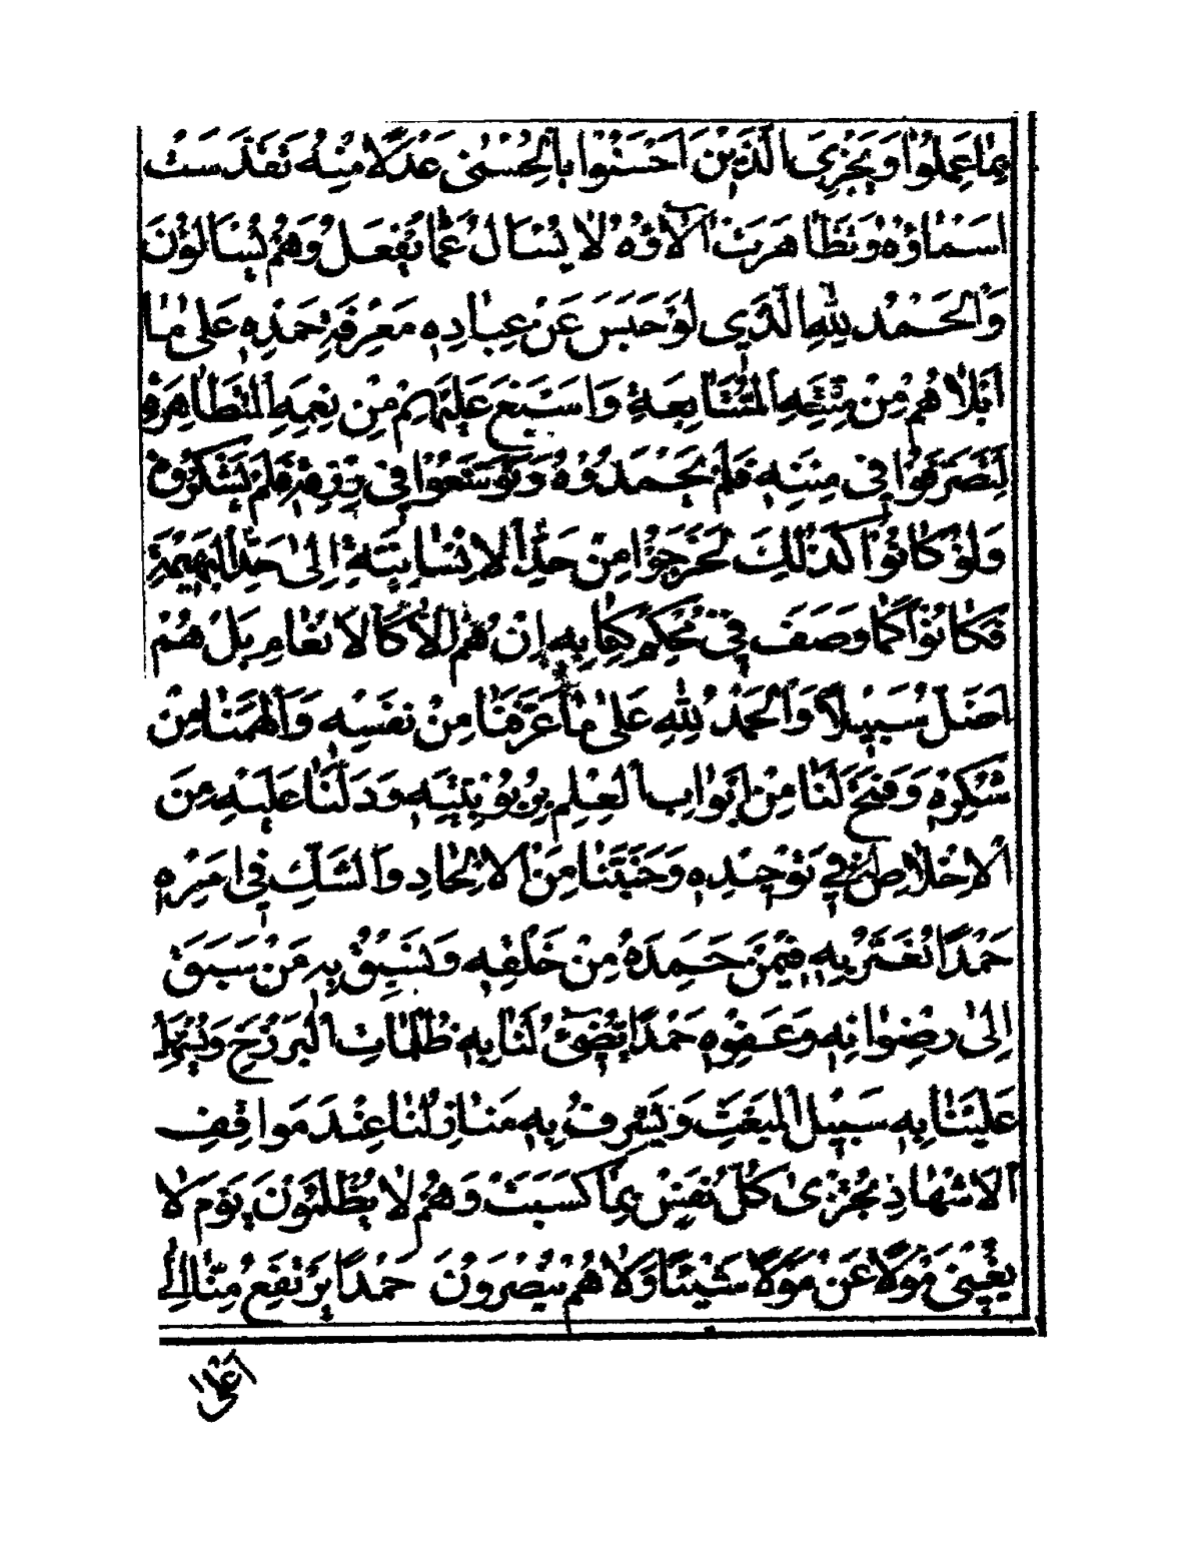 بِمٰا عَمِلُوْا وَيَجْزِىَ الَّذِيْنَ اَحْسَنُوْا بِالْحُسْنٰى عَدْلًا مِنْهُ تَقَدَّسَتْ
اَسْمٰاؤُهُ وَتَظٰاهَرَتْ اٰلٰاؤُهُ لٰا يُسْاَلُ عَمّٰا يَفْعَلُ وَهُمْ يُسْاَلُوْنَ
وَالْحَمْدُ لِلّٰهِ الَّذِى لَوْ حَبَسَ عَنْ عِبٰادِهِ مَعْرِفَةَ حَمْدِهِ عَلىٰ مٰا
اَبْلٰاهُمْ مِنْ مِنَنِهِ الْمُتَتٰابِعَةِ وَاَسْبَغَ عَلَيْهِمْ مِنْ نِعَمِهِ الْمُتَظٰاهِرَةِ
لَتَصَرَّفُوْا فِى مِنَنِهِ فَلَمْ يَحْمَدُوْهُ وَتَوَسَّعُوْا فِى رِزْقِهِ فَلَمْ يَشْكُرُوْهُ
وَلَوْ كٰانُوْا كَذٰلِكَ لَخَرَجُوْا مِنْ حُدُوْدِ الْاِنْسٰانِيَّةِ اِلىٰ حَدِّ الْبَهِيْمِيَّةِ
فَكٰانُوْا كَمٰا وَصَفَ فِىْ مُحْكَمِ كِتٰابِهِ اِنْ هُمْ اِلَّا كَالْاَنْعٰامِ بَلْ هُمْ
اَضَلُّ سَبِيْلًا وَالْحَمْدُ لِلّٰهِ عَلىٰ مٰا عَرَّفَنٰا مِنْ نَفْسِهِ وَاَلْهَمَنٰا مِنْ
شُكْرِهِ وَفَتَحَ لَنٰا مِنْ اَبْوٰابِ الْعِلْمِ بِرُبُوْبِيَّتِهِ وَدَلَّنٰا عَلَيْهِ مِنَ
الْاِخْلٰاصِ لَهُ فِي تَوْحِيْدِهِ وَجَنَّبَنٰا مِنَ الْاِلْحٰادِ وَالشَّكِّ فِى اَمْرِهِ
حَمْدًا نُعَمَّرُ بِهِ فِيْمَنْ حَمِدَهُ مِنْ خَلْقِهِ وَنَسْبِقُ بِهِ مَنْ سَبَقَ
اِلىٰ رِضْوٰانِهِ وَعَفْوِهِ حَمْدًا يُضِيْئُ لَنٰا بِهِ ظُلُمٰاتِ الْبَرْزَخِ وَيُسَهِّلُ
عَلَيْنٰا بِهِ سَبِيْلَ الْمَبْعَثِ وَيُشَرِّفُ بِهِ مَنٰازِلَنٰا عِنْدَ مَوٰاقِفِ
الْاَشْهٰادِ يُجْزٰى كُلُّ نَفْسٍ بِمٰا كَسَبَتْ وَهُمْ لٰا يُظْلَمُوْنَ يَوْمَ لٰا
يُغْنِىْ مَوْلًا عَنْ مَوْلًا شَيْئًا وَلٰا هُمْ يُنْصَرُوْنَ حَمْدًا يَرْتَفِعُ مِنّٰا اِلٰى
اَعْلىٰ